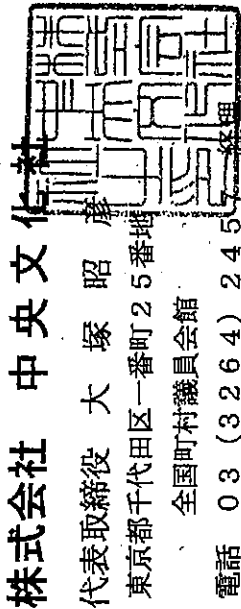 株式会社 中央文化社
代表取締役 大塚昭彦
東京都千代田区一番町25番地
全国町村議員会館
電話 03(3264)245
経理